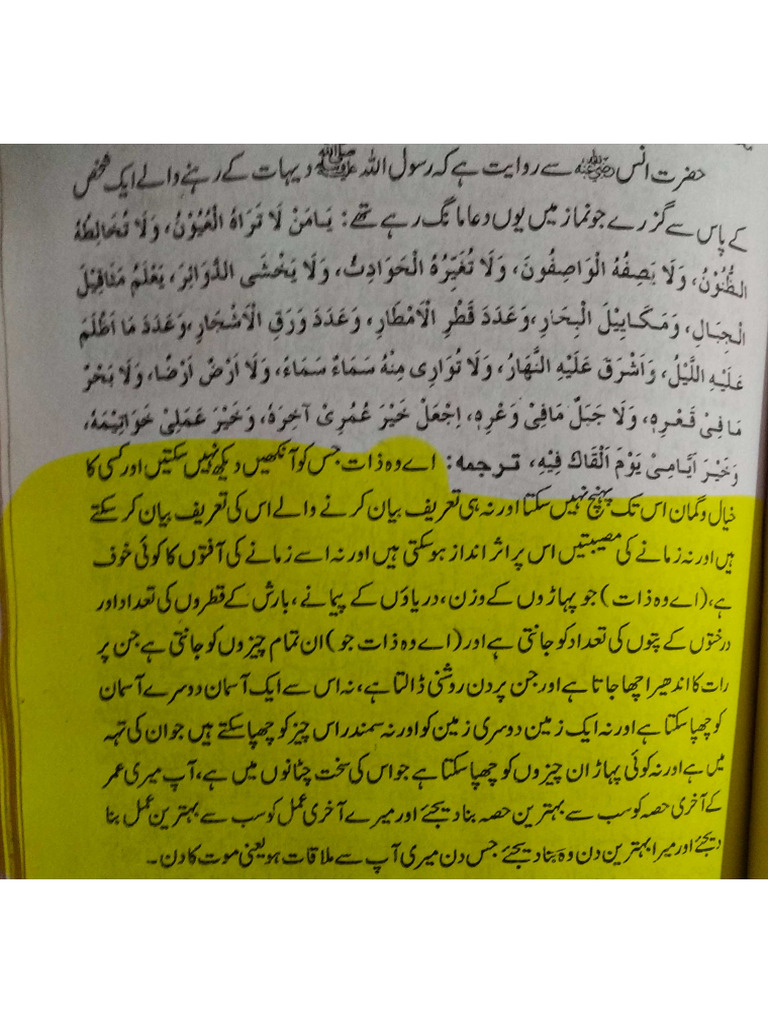 حضرت انس رضی اللہ عنہ سے روایت ہے کہ رسول اللہ ﷺ دیہات کے رہنے والے ایک شخص
کے پاس سے گزرے جو نماز میں یوں دعا مانگ رہے تھے: يَامَنْ لَا تَرَاهُ الْعُيُوْنُ، وَلَا تُخَالِطُهُ
الظُّنُوْنُ، وَلَا يَصِفُهُ الْوَاصِفُونَ، وَلَا تُغَيِّرُهُ الْحَوَادِثُ، وَلَا يَخْشَى الدَّوَائِرَ، يَعْلَمُ مَثَاقِيْلَ
الْجِبَالِ، وَمَكَايِيْلَ الْبِحَارِ، وَعَدَدَ قَطْرِ الْاَمْطَارِ، وَعَدَدَ وَرَقِ الْاَشْجَارِ، وَعَدَدَ مَا اَظْلَمَ
عَلَيْهِ اللَّيْلُ، وَاَشْرَقَ عَلَيْهِ النَّهَارُ، وَلَا تُوَارِى مِنْهُ سَمَاءٌ سَمَاءً، وَلَا اَرْضٌ اَرْضًا، وَلَا بَحْرٌ
مَا فِىْ قَعْرِهٖ، وَلَا جَبَلٌ مَافِىْ وَعْرِهٖ، اِجْعَلْ خَيْرَ عُمُرِىْ آخِرَهُ، وَخَيْرَ عَمَلِىْ خَوَاتِيْمَهُ،
وَخَيْرَ اَيَّامِىْ يَوْمَ اَلْقَاكَ فِيْهِ، ترجمہ: اے وہ ذات جس کو آنکھیں دیکھ نہیں سکتیں اور کسی کا
خیال و گمان اس تک پہنچ نہیں سکتا اور نہ ہی تعریف بیان کرنے والے اس کی تعریف بیان کر سکتے
ہیں اور نہ زمانے کی مصیبتیں اس پر اثر انداز ہو سکتی ہیں اور نہ اسے زمانے کی آفتوں کا کوئی خوف
ہے، (اے وہ ذات) جو پہاڑوں کے وزن، دریاؤں کے پیمانے، بارش کے قطروں کی تعداد اور
درختوں کے پتوں کی تعداد کو جانتی ہے اور (اے وہ ذات جو) ان تمام چیزوں کو جانتی ہے جن پر
رات کا اندھیرا چھا جاتا ہے اور جن پر دن روشنی ڈالتا ہے، نہ اس سے ایک آسمان دوسرے آسمان
کو چھپا سکتا ہے اور نہ ایک زمین دوسری زمین کو اور نہ سمندر اس چیز کو چھپا سکتے ہیں جو ان کی تہہ
میں ہے اور نہ کوئی پہاڑ ان چیزوں کو چھپا سکتا ہے جو اس کی سخت چٹانوں میں ہے، آپ میری عمر
کے آخری حصہ کو سب سے بہترین حصہ بنا دیجئے اور میرے آخری عمل کو سب سے بہترین عمل بنا
دیجئے اور میرا بہترین دن وہ بنا دیجئے جس دن میری آپ سے ملاقات ہو یعنی موت کا دن۔